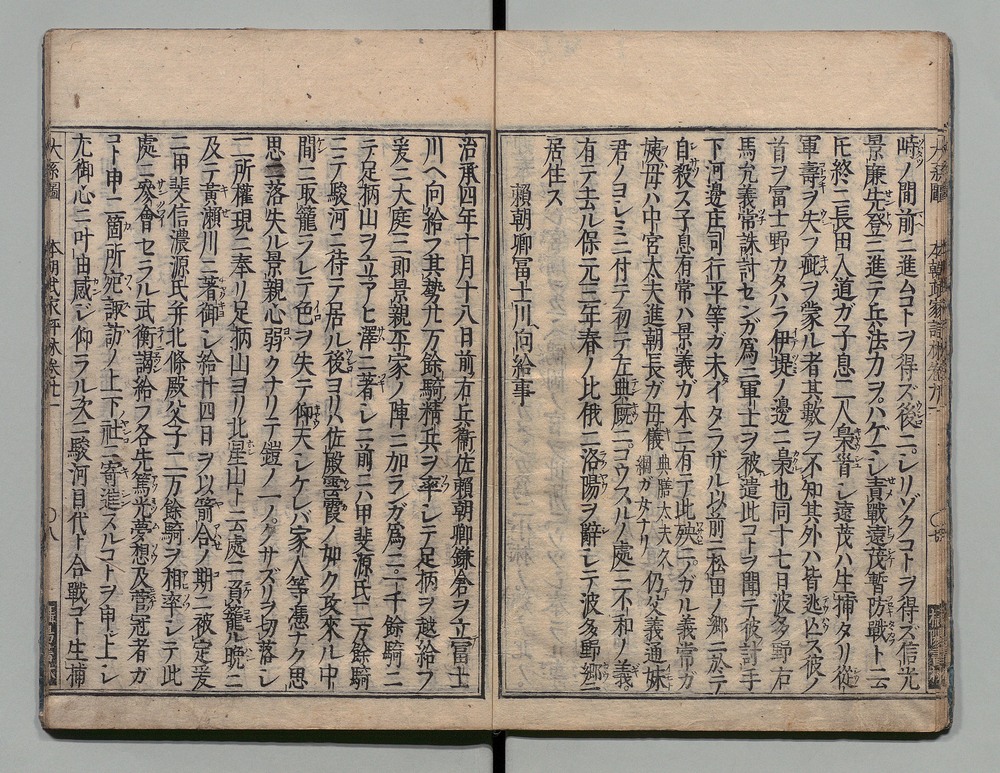 時ノ間前ニ進ムコトヲ得ズ後ニシリゾクコトヲ得ズ信光
景廉先登ニ進テ兵法力ヲハゲシ責戰遠茂暫防戰ト云
圧終ニ長田入道ガ子息二人梟首シ遠茂ハ生捕タリ從
軍壽ヲ失フ疵ヲ蒙ル者其數ヲ不知其外ハ皆逃亡ス彼ノ
首ヲ冨士野カタハラ伊堤ノ邊ニ梟也同十七日波多野右
馬允義常誅討センガ爲ニ軍士ヲ被遣此コトヲ聞テ彼討手
下河邊庄司行平等ガ未イタラザル以前ニ松田ノ郷ニ於テ
自殺ス子息有常ハ景義ガ本ニ有テ此殃ニアガル義常ガ
姨母ハ中宮太夫進朝長ガ母儀典膳太夫久綱ガ女ナリ仍父義通妹
君ノヨシミニ付テ初テ左典厩ニゴウスルノ處ニ不和ノ義
有テ去ル保元三年春ノ比俄ニ洛陽ヲ辭シテ波多野郷ニ
居住ス
賴朝卿冨士川向給事
治承四年十月十八日前右兵衞佐賴朝卿鎌倉ヲ立冨士
川ヘ向給フ其勢廿万余騎精兵ヲ率シテ足柄ヲ越給フ
爰ニ大庭三郎景親平家ノ陣ニ加ランガ爲ニ一千餘騎ニ
テ足柄山ヲ立アヒ澤ニ著シ二前ニ八甲斐源氏二万餘騎
ニテ駿河ニ待テ居ル後ヨリハ佐殿雲霞ノ如ク攻來ル中
間ニ取籠ラレテ色ヲ失テ仰天シケレバ家人等憑ナク思
思ニ落失ル景親心弱クナリテ鎧ノ一ノクサズリヲ切落シ
二所權現ニ奉リ足柄山ヨリ北星山ト云處ニ引籠ル晩ニ
及テ黄瀬川ニ著御シ給廿四日ヲ以箭合ノ期ニ被定爰
ニ甲斐信濃源氏并北條殿父子二万餘騎ヲ相率シテ此
處ニ參會セラル武衡謁給フ各先篤光夢想及菅冠者ガ
コト申二箇所宛諏訪ノ上下ノ社ニ寄進スルコトヲ申上シ
尤御心ニ叶由感ジ仰ラル次ニ駿河目代ト合戰コト生捕
本朝武家評林卷九一